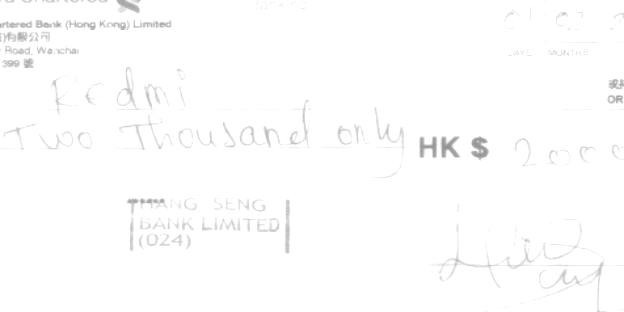 Chartered
Banking
Bank (Hong Kong) Limited
有限公司
Road, Wanchai
399 號
DAY MONTH
OR
Redmi
Two Thousand only HK $ 2000
HANG SENG
BANK LIMITED
(024)